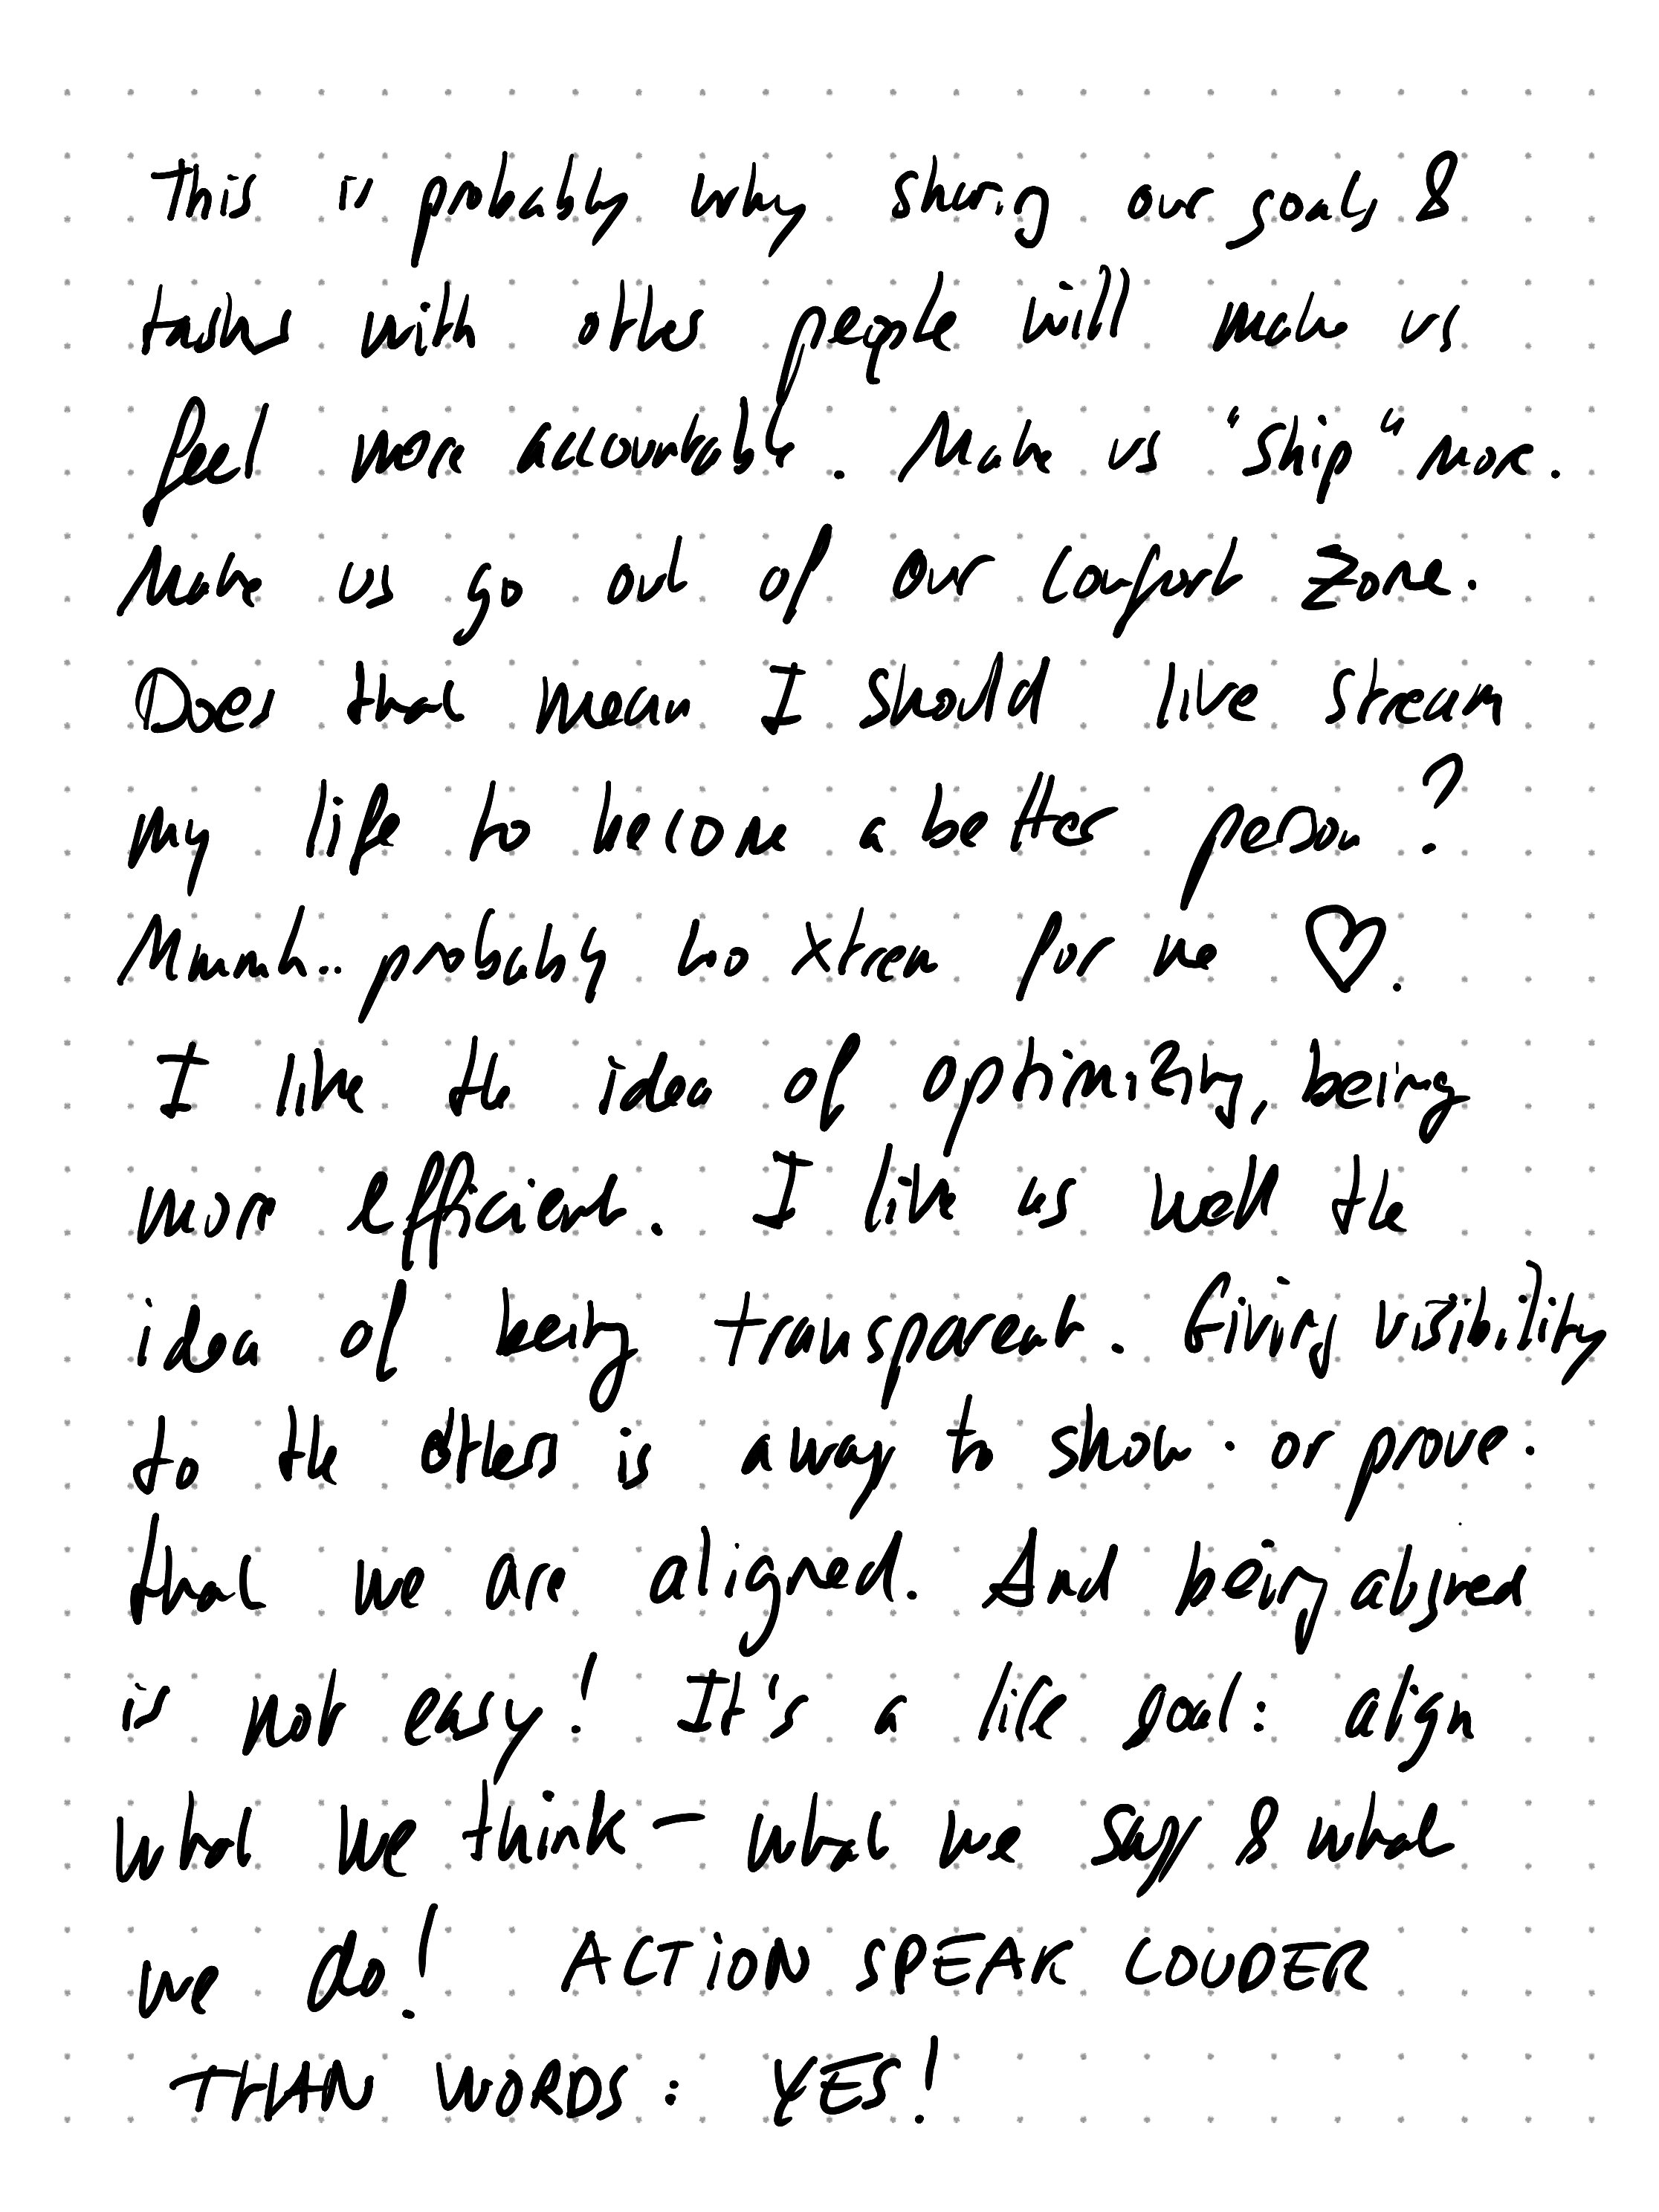 This is probably why sharing our goals &
tasks with other people will make us
feel more accountable. Make us "ship" more.
Make us go out of our comfort zone.
Does that mean I should live stream
my life to become a better person?
Mmmh.. probably too xtrem for me ♡.
I like the idea of optimizing, being
more efficient. I like as well the
idea of being transparent. Giving visibility
to the others is a way to show - or prove -
that we are aligned. And being aligned
is not easy! It's a life goal: align
what we think - what we say & what
we do! ACTION SPEAK LOUDER
THAN WORDS: YES!